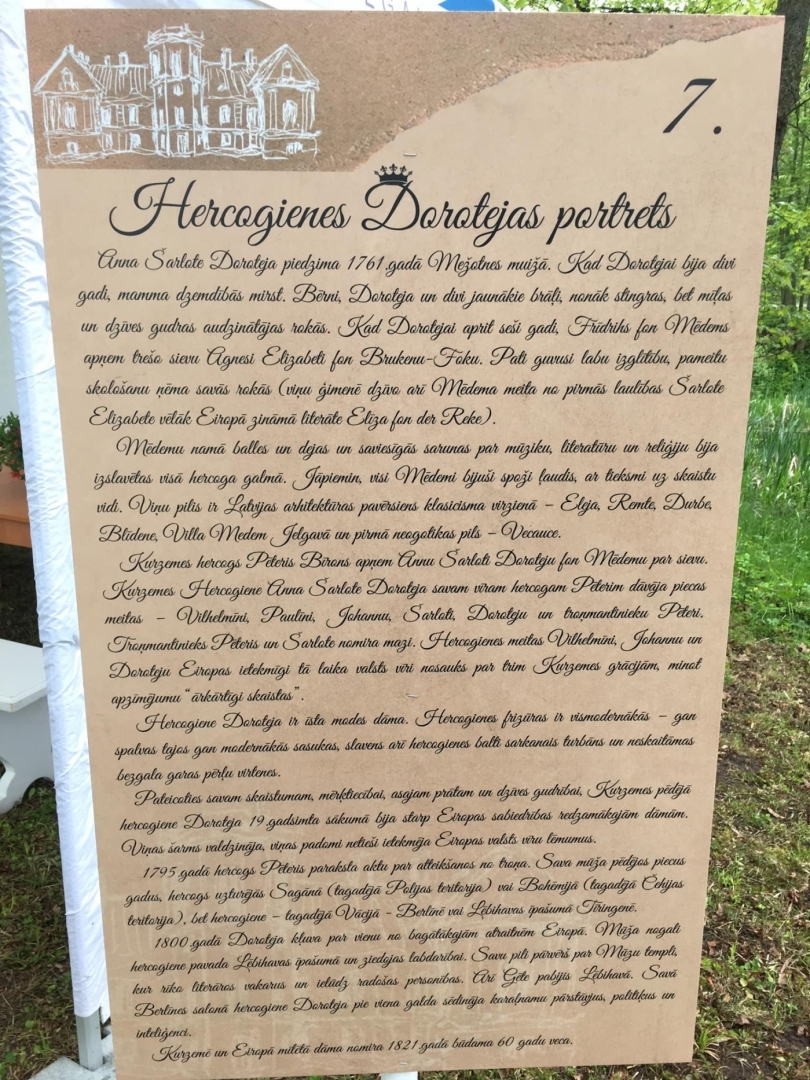 7.
Hercogienes Dorotejas portrets
Anna Šarlote Doroteja piedzima 1761.gadā Mežotnes muižā. Kad Dorotejai bija divi
gadi, mamma dzemdībās mirst. Bērni, Doroteja un divi jaunākie brāļi, nonāk stingras, bet mīļas
un dzīves gudras audzinātājas rokās. Kad Dorotejai aprit seši gadi, Frīdrihs fon Mēdems
apņem trešo sievu Agnesi Elizabeti fon Brukenu-Foku. Pati guvusi labu izglītību, pameitu
skološanu ņēma savās rokās (viņu ģimenē dzīvo arī Mēdema meita no pirmās laulības Šarlote
Elizabete vēlāk Eiropā zināmā literāte Elīza fon der Reke).
Mēdemu namā balles un dejas un saviesīgās sarunas par mūziku, literatūru un reliģiju bija
izslavētas visā hercoga galmā. Jāpiemin, visi Mēdemi bijuši spoži ļaudis, ar tieksmi uz skaistu
vidi. Viņu pilis ir Latvijas arhitektūras pavērsiens klasicisma virzienā – Eleja, Remte, Durbe,
Blīdene, Villa Medem Jelgavā un pirmā neogotikas pils – Vecauce.
Kurzemes hercogs Pēteris Bīrons apņem Annu Šarloti Doroteju fon Mēdemu par sievu.
Kurzemes Hercogiene Anna Šarlote Doroteja savam vīram hercogam Pēterim dāvāja piecas
meitas – Vilhelmīni, Paulīni, Johannu, Šarloti, Doroteju un troņmantinieku Pēteri.
Troņmantinieks Pēteris un Šarlote nomira mazi. Hercogienes meitas Vilhelmīni, Johannu un
Doroteju Eiropas ietekmīgi tā laika valsts vīri nosauks par trim Kurzemes grācijām, minot
apzīmējumu "ārkārtīgi skaistas".
Hercogiene Doroteja ir īsta modes dāma. Hercogienes frizūras ir vismodernākās – gan
spalvas tajos gan modernākās sasukas, slavens arī hercogienes balti sarkanais turbāns un neskaitāmas
bezgala garas pērļu virtenes.
Pateicoties savam skaistumam, mērķtiecībai, asajam prātam un dzīves gudrībai, Kurzemes pēdējā
hercogiene Doroteja 19.gadsimta sākumā bija starp Eiropas sabiedrības redzamākajām dāmām.
Viņas šarms valdzināja, viņas padomi netieši ietekmēja Eiropas valsts vīru lēmumus.
1795.gadā hercogs Pēteris paraksta aktu par atteikšanos no troņa. Sava mūža pēdējos piecus
gadus, hercogs uzturējās Sagānā (tagadējā Polijas teritorija) vai Bohēmijā (tagadējā Čehijas
teritorija), bet hercogiene – tagadējā Vācijā - Berlīnē vai Lēbihavas īpašumā Tīringenē.
1800.gadā Doroteja kļuva par vienu no bagātākajām atraitnēm Eiropā. Mūža nogali
hercogiene pavada Lēbihavas īpašumā un ziedojas labdarībai. Savu pili pārvērš par Mūzu templi,
kur rīko literāros vakarus un ielūdz radošas personības. Arī Gēte pabijis Lēbihavā. Savā
Berlīnes salonā hercogiene Doroteja pie viena galda sēdināja karaļnamu pārstāvjus, politiķus un
inteliģenci.
Kurzemē un Eiropā mīlētā dāma nomira 1821.gadā būdama 60 gadu veca.